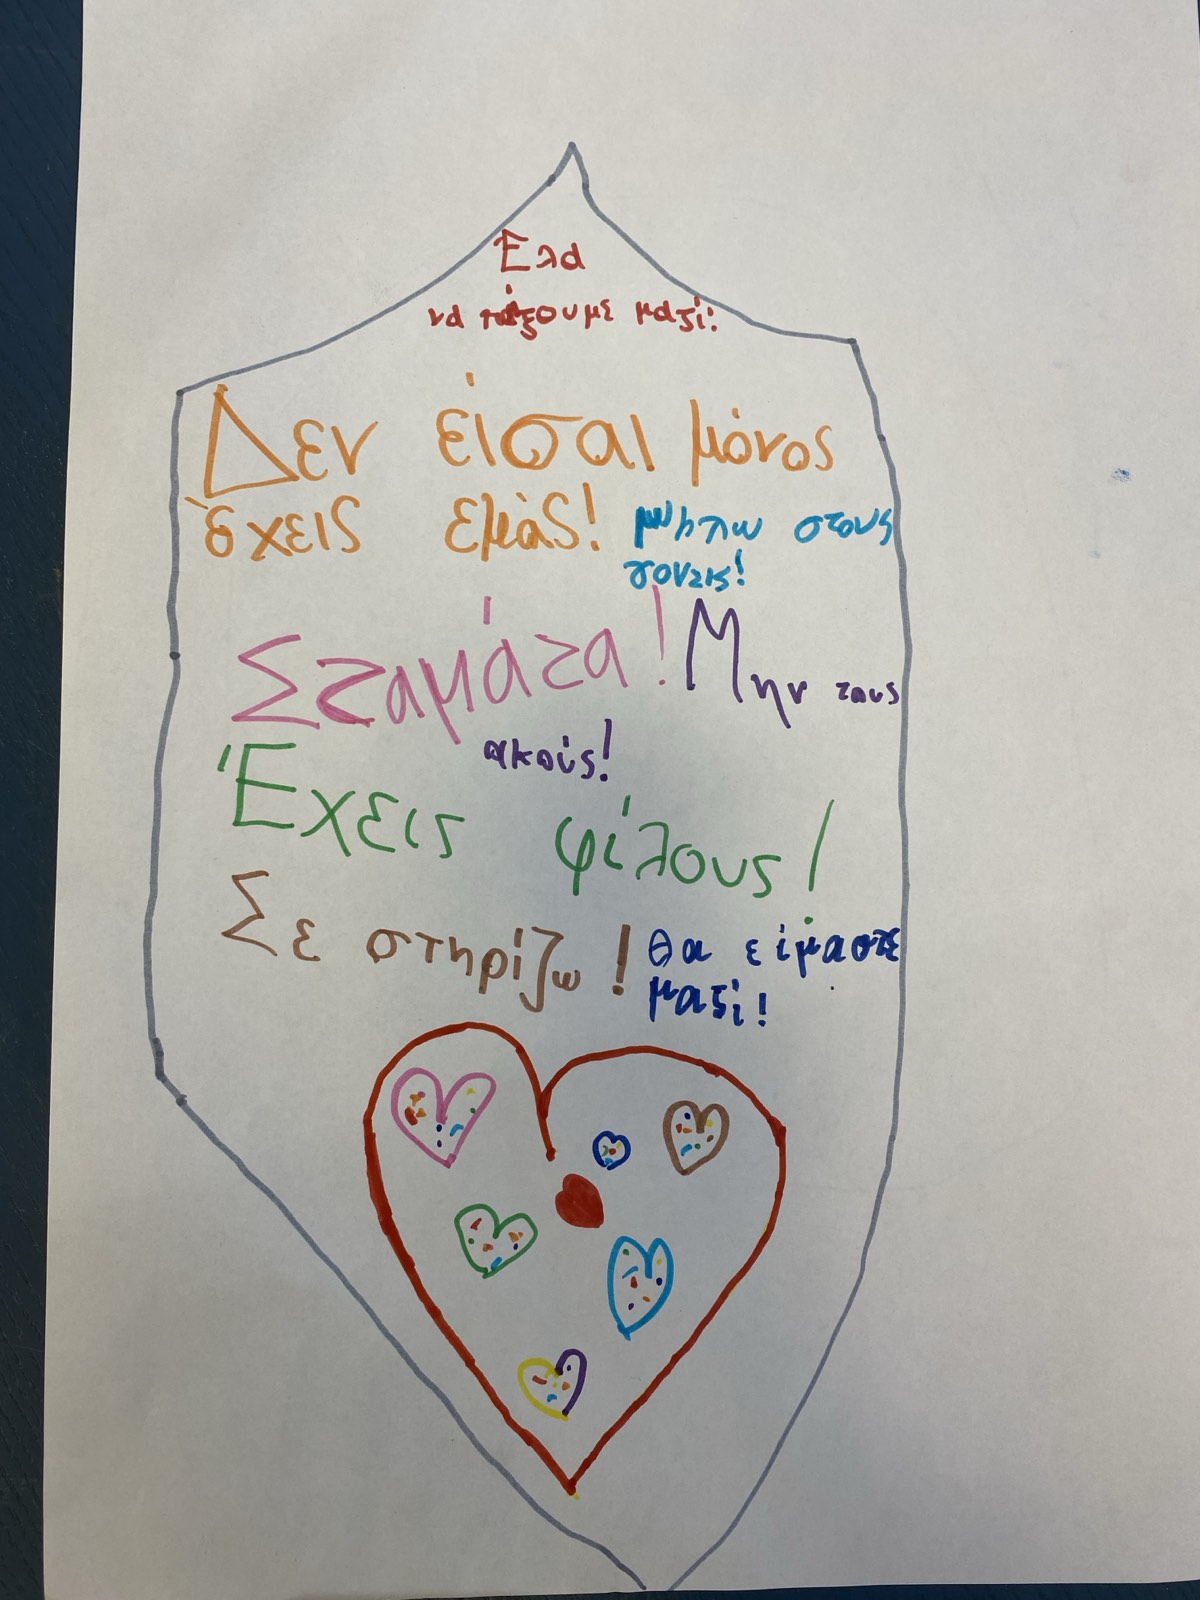 Ελα
να παίξουμε μαζί!
Δεν είσαι μόνος
έχεις εμάς!
στους
γονεις!
Σταμάτα! Μην τους
ακούς!
Έχεις φίλους!
Σε στηρίζω! Θα είμαστε
μαζί!